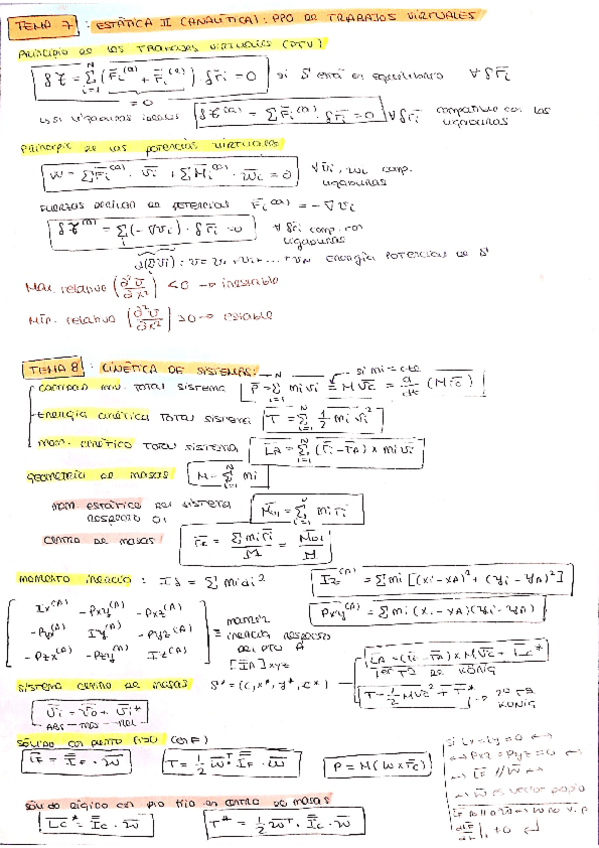 TEMA 7 : ESTÁTICA II (ANALÍTICA): PPO DE TRABAJOS VIRTUALES
PRINCIPIO DE LOS TRABAJOS VIRTUALES (PTV)
δτ = Σ_{i=1}^{N} (F̄i^(a) + F̄i^(e)) · δr̄i = 0 si S está en equilibrio ∀ δr̄i
= 0
si ligaduras ideales δτ^(a) = Σ F̄i^(a) · δr̄i = 0 ∀ δr̄i compatible con las ligaduras
PRINCIPIO de las potencias virtuales
W = Σ F̄i^(a) · v̄i + Σ M̄i^(a) · w̄i = 0 ∀ v̄i, w̄i comp. ligaduras
FUERZAS derivan de potencial F̄i^(a) = -∇vi
δτ^(a) = Σ (-∇vi) · δr̄i = 0 ∀ δr̄i comp. con ligaduras
: v = v1 + v2 + ... + vN energía potencial de S
Máx. relativo (∂²v/∂x²) < 0 → inestable
Mín. relativo (∂²v/∂x²) > 0 → estable
TEMA 8 : CINÉTICA DE SISTEMAS:
si mi = cte
cantidad mov. total sistema P̄ = Σ_{i=1}^{N} mi v̄i = M v̄c = d/dt (M r̄c)
energía cinética total sistema T = Σ_{i=1}^{N} 1/2 mi vi²
mom. cinético total sistema L̄A = Σ_{i=1}^{N} (r̄i - r̄A) x mi v̄i
GEOMETRÍA DE MASAS M = Σ_{i=1}^{N} mi
mom estático del sistema respecto O1 M̄O1 = Σ_{i=1}^{N} mi r̄i
centro de masas: r̄c = Σ mi r̄i / M = M̄O1 / M
MOMENTO INERCIA : Iδ = Σ mi di² Iz^(A) = Σ mi [(xi - xA)² + (yi - yA)²]
Pxy^(A) = Σ mi (xi - xA)(yi - yA)
Ix^(A) -Pxy^(A) -Pxz^(A)
-Pyx^(A) Iy^(A) -Pyz^(A)
-Pzx^(A) -Pzy^(A) Iz^(A)
= matriz inercia respecto del pto A [IA]xyz
L̄A = (r̄c - r̄A) x M v̄c + L̄c*
1er Tª DE KÖNIG
SISTEMA CENTRO DE MASAS S* = (C, x*, y*, z*)
T = 1/2 M vc² + T* → 2º Tª KÖNIG
v̄i = v̄c + v̄i*
ABS = + REL
SÓLIDO con punto fijo (O ∈ F)
L̄F = ĪF · w̄ T = 1/2 w̄^T · ĪF · w̄ P = M (w̄ x r̄c)
Pxz = Pyz = 0
L̄F // w̄
w̄ es vector propio
sólido rígido con pto fijo en centro de masas
L̄c* = Īc · w̄ T* = 1/2 w̄^T · Īc · w̄